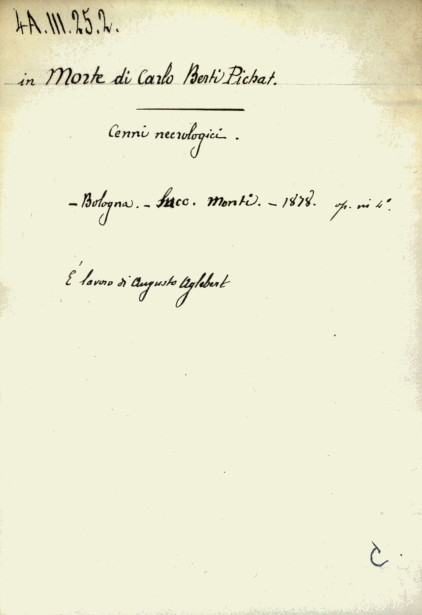 4A.III.25.2.
in Morte di Carlo Berti Pichat.
Cenni necrologici.
- Bologna. - Succ. Monti. - 1878. op. in 4°.
È lavoro di Augusto Aglebert
C